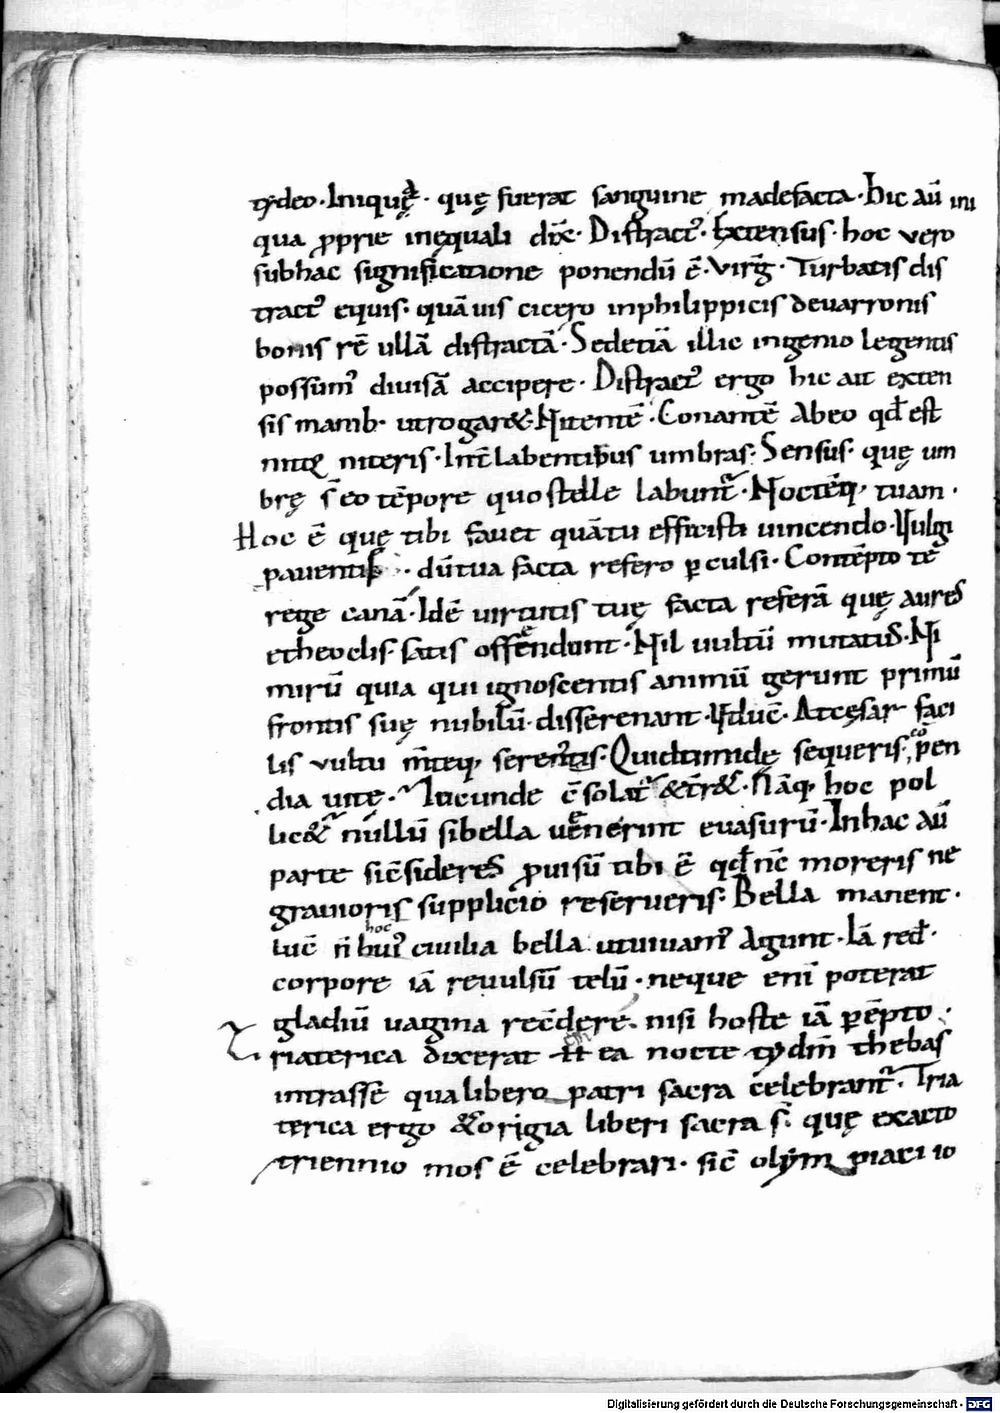 tẏdeo · Iniquę · quę fuerat sanguine madefacta · hic aū ini
qua ꝓprie inęquali dix̄ · Distract᾽ · Extensus · hoc vero
subhac significatione ponendū ē · virḡ · Turbatis dis
tract᾽ equis · quāuis cicero inphilippicis deuarronis
bonis rē ullā distractā · Sedetiā illic ingenio legentis
possum᾽ diuisā accipere · Distract᾽ ergo hic ait exten
sis manib· utrogar&· Nitentē · Conantē Abeo qđ est
niteris · Int̄labentibus umbras · Sensus · quę um
brę s̄ eo tēpore quo stelle labunt᾽ · Noctēq· tuam ·
Hoc ē quę tibi fauet quātū efficisti uincendo · Vulgi
pauentis · dūtua facta refero ꝑculsi · Contēpto tē
rege canā · Idē uirtutis tuę facta referā quę aures
etheoclis satis offendunt · Nil uultū mutatus · Ni
mirū quia qui ignoscentis animū gerunt primū
frontis suę nubilū disserenant · Vduc̄ · Atcęsar faci
lis vultu m̄teq· serentis · Quidtimide sequeris
dia uitę · Iocunde c̄solat᾽ &t̄r& · Nāq· hoc pol
lic& nullū sibella uenerint euasurū · Inhac aū
parte sic̄sideres ꝓuisū tibi ē qđ nc̄ moreris ne
grauioris supplicio reserueris · Bella manent ·
luc̄ n̄ hui᾽ hoc ciuilia bella utuiuant᾽ Agunt · Iā red̄ ·
corpore iā reuulsū telū · neque eni᾽ poterat
gladiū uagina rec̄dere nisi hoste iā ꝑēpto ·
Triaterica dixerat ea nocte tẏdm̄ thebas
intrasse qua libero patri sacra celebrant᾽ · Tria
terica ergo &origia liberi sacra s̄ · quę exacto
triennio mos ē celebrari · sic̄ olẏmpiaci io
Digitalisierung gefördert durch die Deutsche Forschungsgemeinschaft - DFG